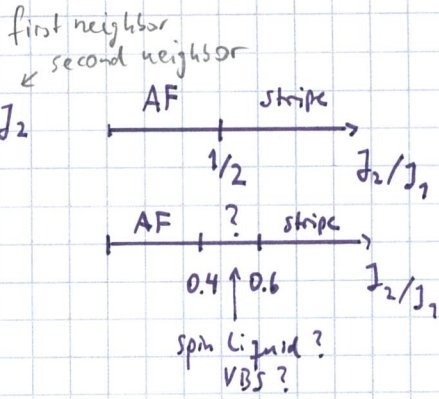 first neighbor
second neighbor
J₂
AF stripe
1/2
J₂/J₁
AF ? stripe
0.4 0.6
J₂/J₁
spin liquid ?
VBS ?